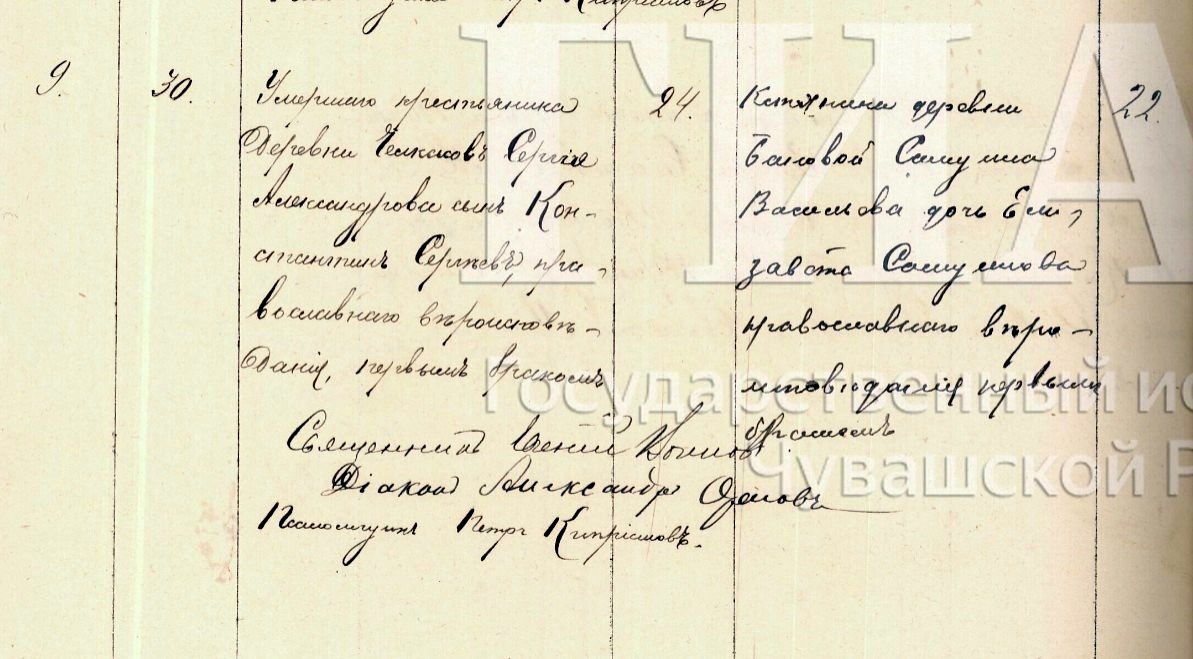 9.
30.
Умершаго крестьянина
Деревни Челкасовъ Сергія
Александрова сынъ Кон-
стантинъ Сергѣевъ, пра-
вославнаго вѣроисповѣ-
данія, первымъ бракомъ
24.
деревни
Баловой Самуила
Васильева дочь Ели-
завета Самуилова
православнаго вѣро-
исповѣданія первымъ
бракомъ
22.
Священникъ
Діаконъ Александръ Орловъ
Псаломщикъ Петръ
ГИА
Государственный ис
Чувашской Р